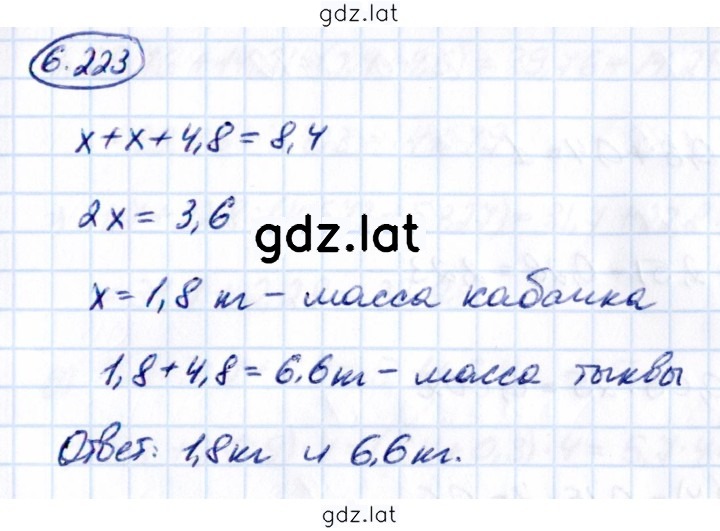 gdz.lat
6.223
x+x+4,8=8,4
2x=3,6
gdz.lat
x=1,8 кг - масса кабачка
1,8+4,8=6.6кг - масса тыквы
Ответ: 1,8кг и 6,6кг.
gdz.lat